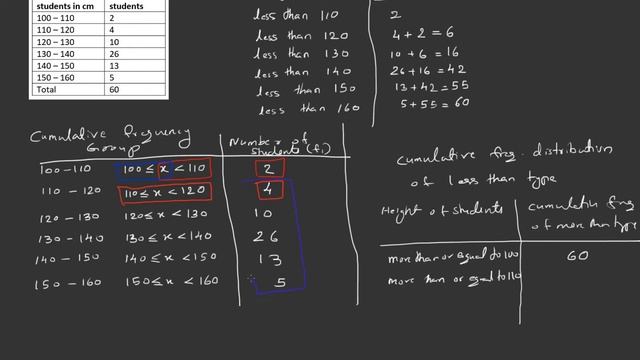 students in cm students
100 – 110 2
110 – 120 4
120 – 130 10
130 – 140 26
140 – 150 13
150 – 160 5
Total 60
less than 110 2
less than 120 4 + 2 = 6
less than 130 10 + 6 = 16
less than 140 26 + 16 = 42
less than 150 13 + 42 = 55
less than 160 5 + 55 = 60
Cumulative frequency Group
Number of students (fi)
100 - 110 100 ≤ x < 110 2
110 - 120 110 ≤ x < 120 4
120 - 130 120 ≤ x < 130 10
130 - 140 130 ≤ x < 140 26
140 - 150 140 ≤ x < 150 13
150 - 160 150 ≤ x < 160 5
cumulative freq. distribution
of less than type
Height of students
cumulative freq
of more than type
more than or equal to 100 60
more than or equal to 110